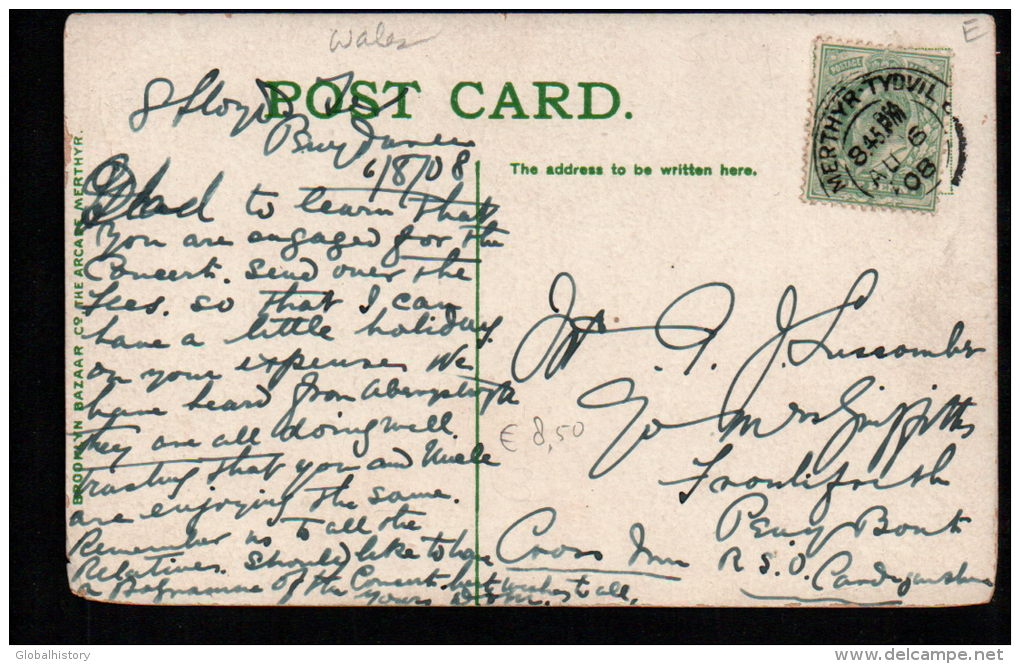 Wales
E
POST CARD.
8 Lloyd Ter
6/8/08
MERTHYR-TYDVIL
8 45 PM
AU 6
08
POSTAGE
The address to be written here.
BROOKLYN BAZAAR Co. THE ARCADE, MERTHYR.
Glad to learn that
you are engaged for the
Concert. Send over the
Fees. so that I can
have a little holiday
on your expense We
have heard from Aberystwyth
they are all doing well.
trusting that you and Uncle
are enjoying the same.
Remember us to all the
Relatives. Should like to have
a Programme of the Concert. best wishes to all,
Yours
J. Luscombe
c/o Mrs Griffiths
Pen y Bont
Cross Inn
R. S. O. Cardiganshire
€ 8,50
Globalhistory
http://www.delcampe.net